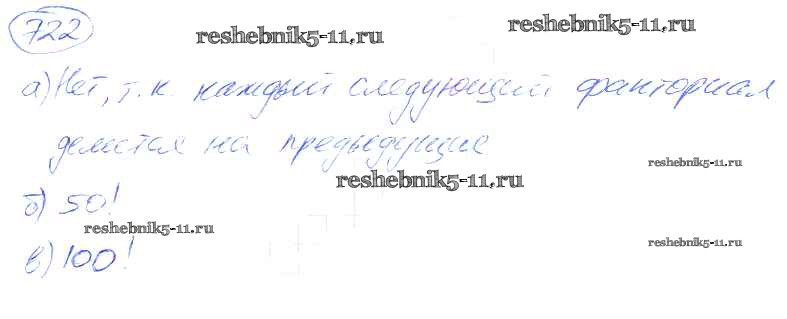 722
reshebnik5-11.ru
reshebnik5-11.ru
а) Нет, т. к. каждый следующий факториал
делится на предыдущие
reshebnik5-11.ru
reshebnik5-11.ru
б) 50!
reshebnik5-11.ru
reshebnik5-11.ru
в) 100!